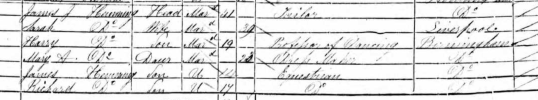 James J Hemming Head Mard 41 Tailor Do
Sarah Do Wife Mard 39 Liverpool
Harry Do Son Mard 19 Professor of Dancing Birmingham
Mary A. Do Daur Mard 22 Do
James Hemming Son U Equestrian Do
Richard Do Son U 17 Do Do